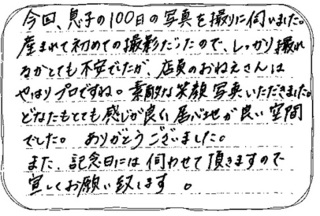 今回、息子の100日の写真を撮りに伺いました。
産まれて初めての撮影だったので、しっかり撮れ
るかとても不安でしたが、店員のおねえさんは
やはりプロですね。素敵な笑顔写真いただきました。
どなたもとても感じが良く居心地が良い空間
でした。ありがとうございました。
また、記念日には伺わせて頂きますので
宜しくお願い致します。